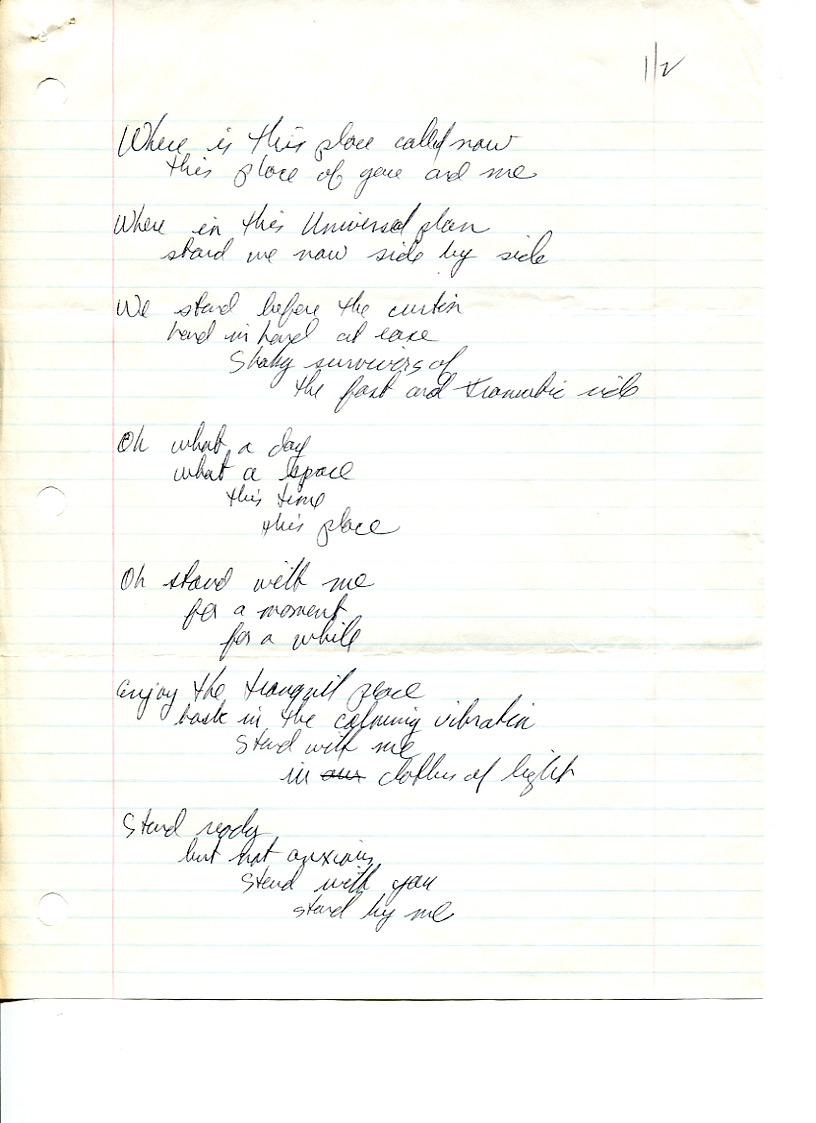 1/2
Where is this place called now
this place of you and me
Where in this Universal plan
stand we now side by side
We stand before the curtin
hand in hand at ease
Shaky survivers of
the fast and tramatic ride
Oh what a day
what a space
this time
this place
Oh stand with me
for a moment
for a while
enjoy the tranquil place
bask in the calming vibration
Stand with me
in our clothes of light
Stand ready
but not anxious
stand with you
stand by me